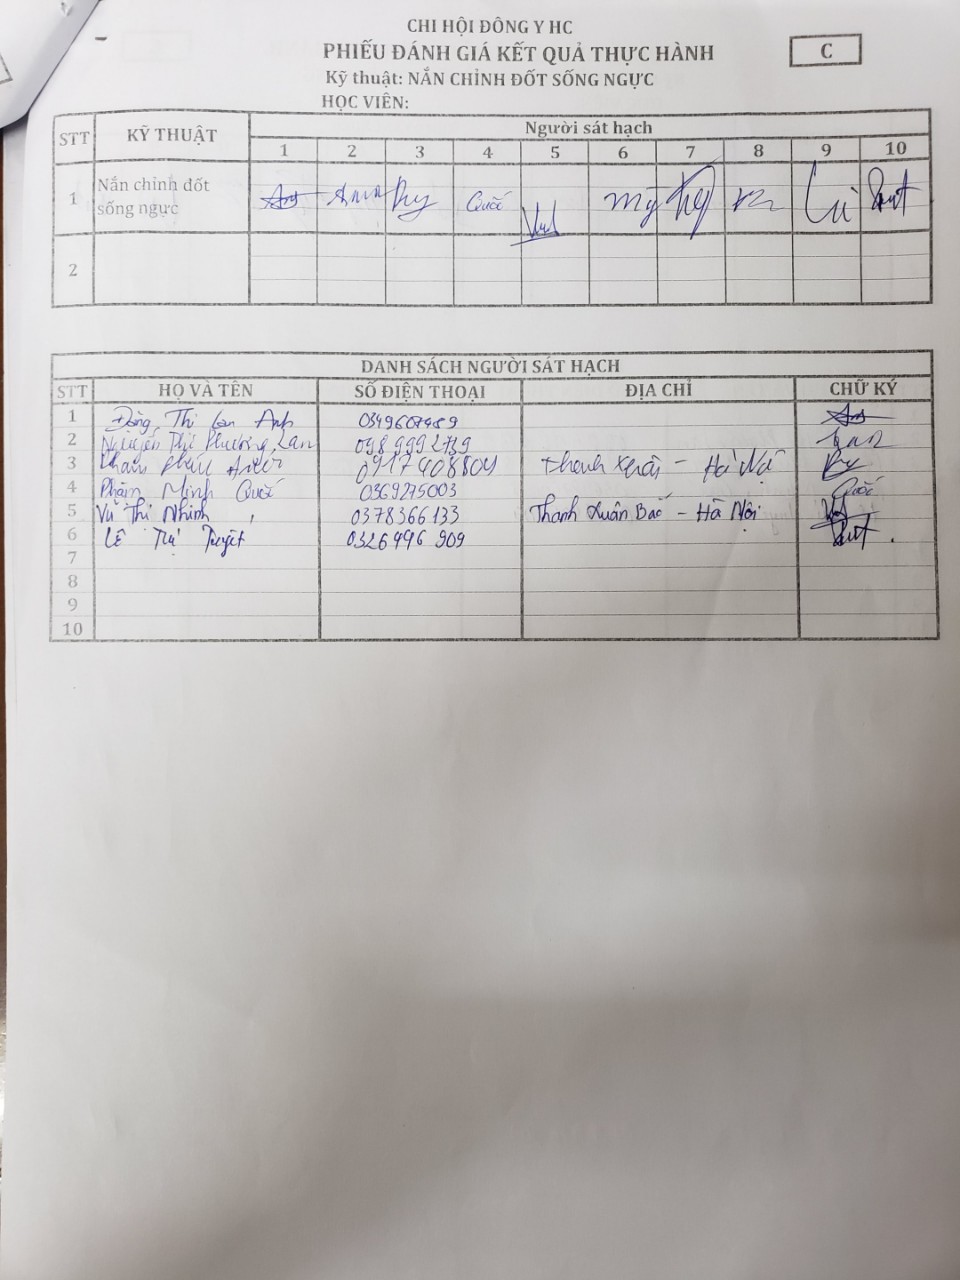 CHI HỘI ĐÔNG Y HC
PHIẾU ĐÁNH GIÁ KẾT QUẢ THỰC HÀNH
C
Kỹ thuật: NẮN CHỈNH ĐỐT SỐNG NGỰC
HỌC VIÊN:
STT KỸ THUẬT Người sát hạch
1 2 3 4 5 6 7 8 9 10
1 Nắn chỉnh đốt sống ngực Quốc Mỹ
2
DANH SÁCH NGƯỜI SÁT HẠCH
STT HỌ VÀ TÊN SỐ ĐIỆN THOẠI ĐỊA CHỈ CHỮ KÝ
1 Thị Lan Anh
2 Nguyễn Thị Phương Lan Lan
3 Phúc 0917408804 Thanh Xuân - Hà Nội
4 Phạm Minh Quốc 0369275003 Quốc
5 Vũ Thị Nhinh 0378366133 Thanh Xuân Bắc - Hà Nội
6 Lê Tuyết 0326496909
7
8
9
10